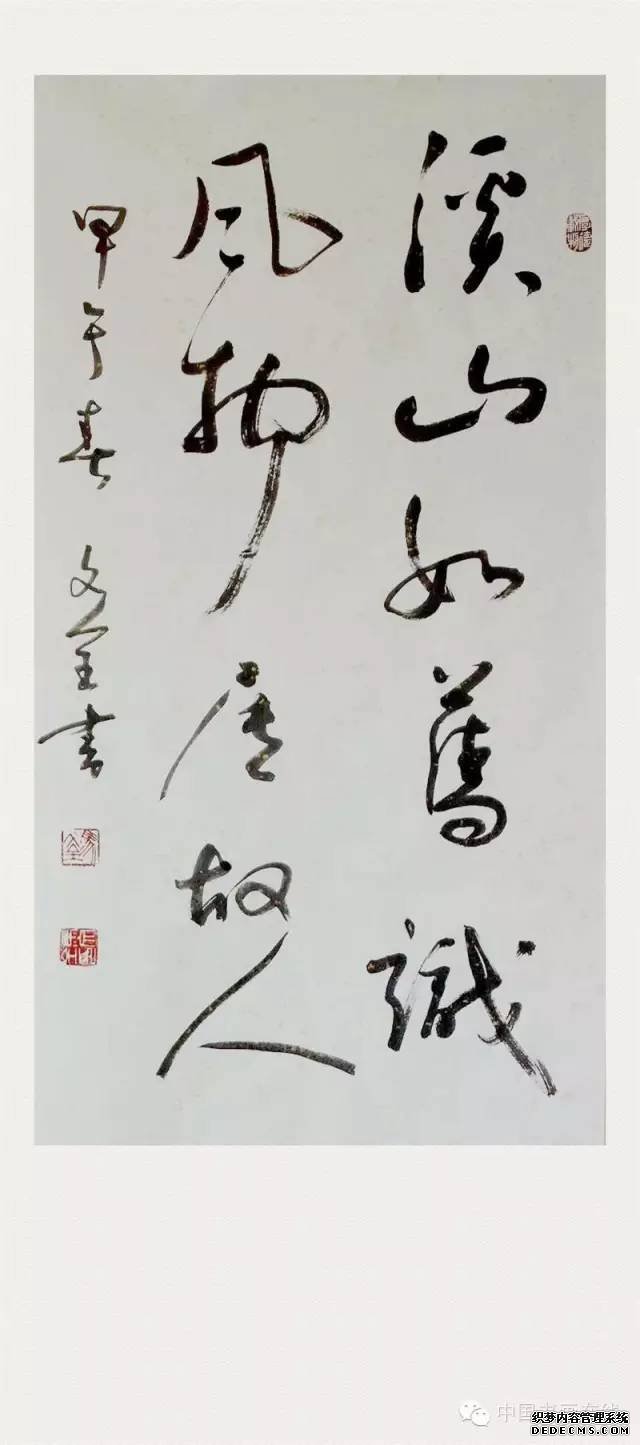 溪山如舊識
風物故人
甲午春 文全書
中国书画在线
织梦内容管理系统
DEDECMS.COM